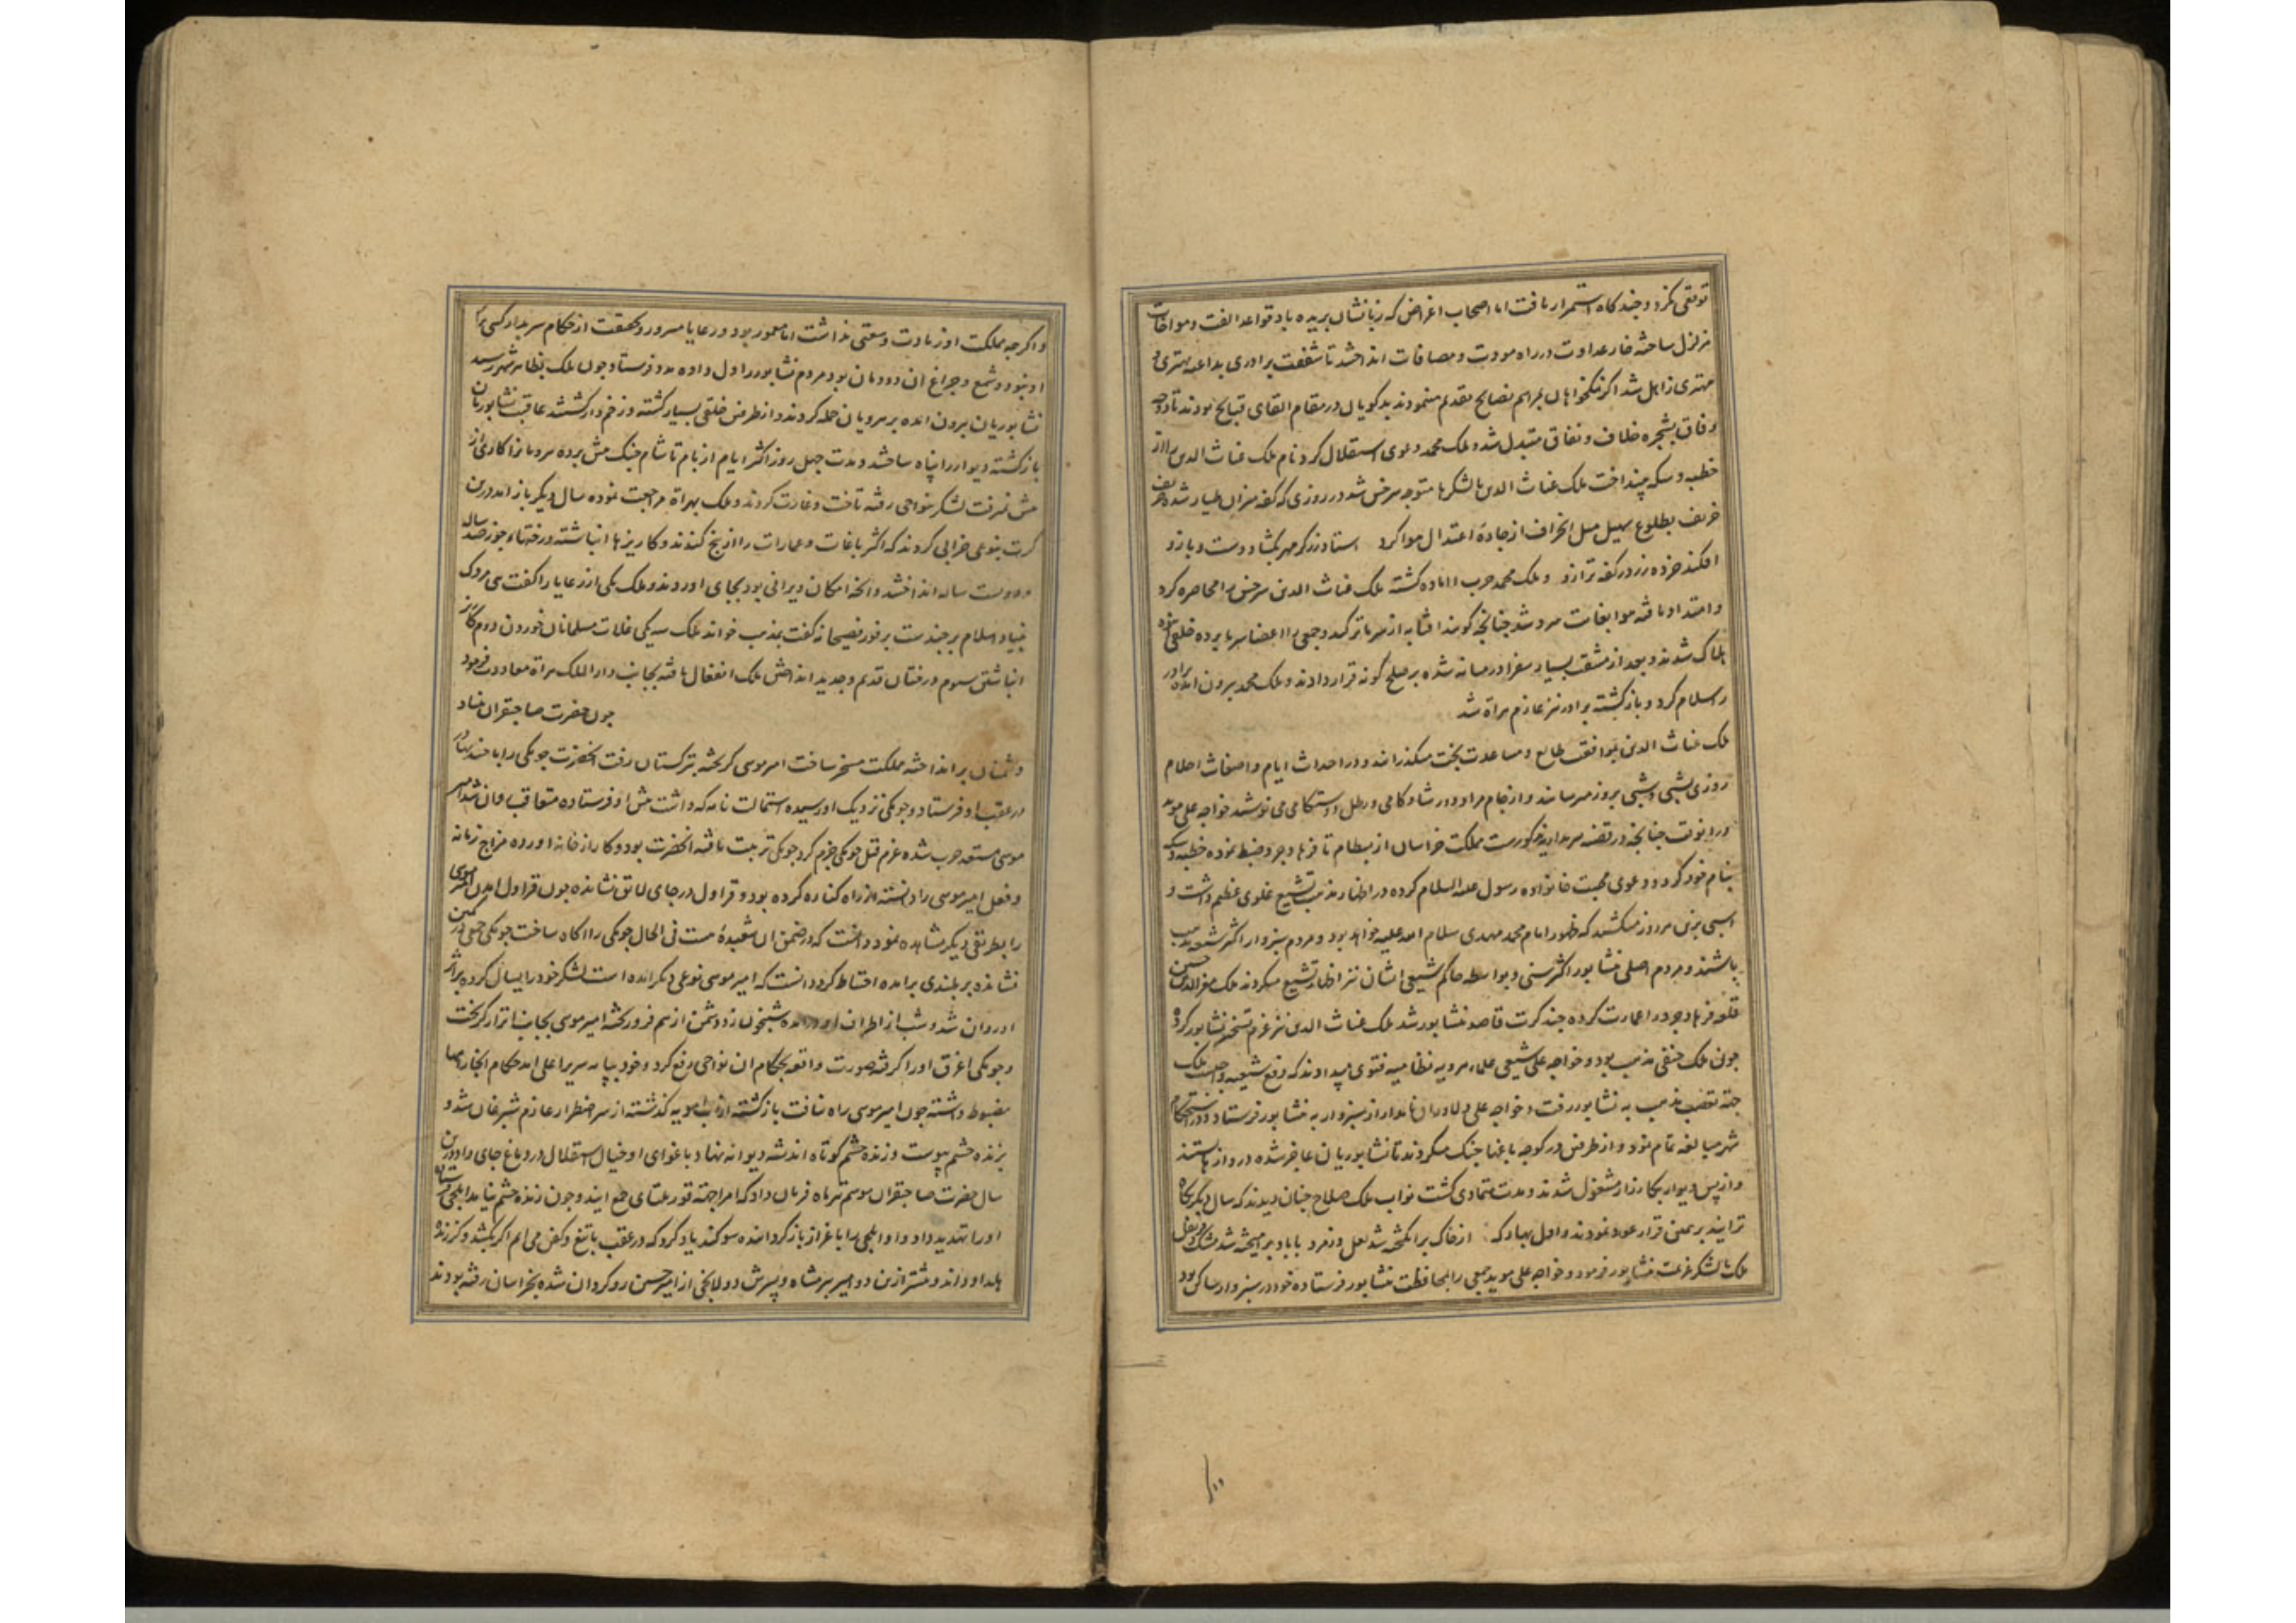 توقفی نکرد و چند کاه استمرار یافت اما اصحاب اغراض که زبانشان بریده باد قواعد الفت و مواخات
متزلزل ساخته خار عداوت در راه مودت و مصافات انداختند تا شفقت برادری بداعیه بهتری و
مهتری زایل شد اکر نیکخواهان مراهم نصایح تقدیم مینمودند بدکویان در مقام القای قبایح بودند تا دوحه
وفاق بشجره خلاف و نفاق متبدل شد و ملک محمد دعوی استقلال کرد نام ملک غیاث الدین را از
خطبه و سکه بینداخت ملک غیاث الدین با لشکرها متوجه سرخس شد در روزی که کفه میزان طیار شده
خریف بطلوع سهیل میل انحراف از جادۀ اعتدال هوا کرد استاد زرکر مهر بکشاد دست و بازو
افکند خرده زر در کفه ترازو و ملک محمد حرب را اماده کشته ملک غیاث الدین سرخس را محاصره کرد
و امتداد یافته هوا بغایت سرد شد چنانچه کویند افتابه از سرما ترکید و جمعی را اعضا سرما برده خلقی
هلاک شدند و بعد از مشقت بسیار سفرا در میانه شده بر صلح کونه قرار دادند و ملک محمد بیرون امده برادر
را سلام کرد و بازکشته برادر نیز عازم هراة شد
ملک غیاث الدین بموافقت طالع و مساعدت بخت میکذرانید و در احداث ایام و اضغاث احلام
روزی بشبی و شبی بروز میرسانید و از جام مراد و در شادکامی و رطل دوستکامی می نوشید خواجه علی موید
در این وقت چنانچه در قضیه سربداریه مذکورست مملکت خراسان از بسطام تا فرهادجرد ضبط نموده خطبه و سکه
بنام خود کرد و دعوی محبت خانواده رسول علیه السلام کرده در اظهار مذهب تشیع غلوی عظیم داشت و
اسبی بزین هر روز میکشید که ظهور امام محمد مهدی سلام الله علیه خواهد بود و مردم سبزوار اکثر شیعه مذهب
باشند و مردم اصلی نشابور اکثر سنی و بواسطه حاکم شیعی ایشان نیز اظهار تشیع میکردند ملک معز الدین حسین
قلعه فرهادجرد را عمارت کرده چند کرت قاصد نشابور شد ملک غیاث الدین نیز عزم تسخیر نشابور کرد
چون ملک حنفی مذهب بود و خواجه علی شیعی علماء هرویه نظامیه فتوی میدادند که دفع شیعیه واجبست ملک
جهته تعصب مذهب به نشابور رفت و خواجه علی دلاوران نامدار از سبزوار به نشابور فرستاد و در استحکام
شهر مبالغه تمام نمود و از طرفین در کوچه باغها جنک میکردند تا نشابوریان عاجز شده دروازها بستند
و از پس دیوار بکارزار مشغول شدند و مدت متمادی کشت نواب ملک صلاح چنان دیدند که سال دیکر بکاه
تر ایند بر همین قرار عود نمودند و اول بهار که از خاک برانکیخته شد لعل و زمرد با باد برامیخته شد مشک و قرنفل
ملک با لشکر عزیمت نشابور فرمود و خواجه علی موید جمعی را بمحافظت نشابور فرستاده خود در سبزوار ساکن بود
و اکر چه مملکت او زیادت وسعتی نداشت اما معمور بود و رعایا مسرور و بحقیقت از حکام سربدار کسی برابر
او نبود و شمع و چراغ ان دودمان بود مردم نشابور را دل داده مدد فرستاد و چون ملک بظاهر شهر رسید
نشابوریان بیرون امده بر هرویان حمله کردند و از طرفین خلقی بسیار کشته و زخم دار کشتند عاقبت نشابوریان
بازکشته دیوار را پناه ساختند و مدت چهل روز اکثر ایام از بام تا شام جنک پیش برده هرویانرا کاری از
پیش نمیرفت لشکر بنواحی رفته تاخت و غارت کردند و ملک بهراة مراجعت نموده سال دیکر باز امد و درین
کرت بنوعی خرابی کردند که اکثر باغات و عمارات را از بیخ کندند و کاریزها انباشته درختهاء جوز صد ساله
و دویست ساله انداختند و انچه امکان ویرانی بود بجای اوردند و ملک یکی از رعایا را کفت هی مردک
بنیاد اسلام بر چندست بر فور فصیحانه کفت بمذهب خواند ملک سه یکی غلات مسلمانان خوردن دوم کاریز
انباشتن سیوم درختان قدیم و جدید انداختن ملک انفعال یافته بجانب دار الملک هراة معاودت فرمود
چون حضرت صاحبقران بنیاد
دشمنان برانداخته مملکت مسخر ساخت امیر موسی کریخته بترکستان رفت انحضرت جونکی را با چند بهادر
در عقب او فرستاد و جونکی نزدیک او رسیده استمالت نامه که داشت پیش او فرستاده متعاقب روان شد امیر
موسی مستعد حرب شده عزم قتل جونکی جزم کرد جونکی تربیت یافته انحضرت بود و کار از خانه اورده مزاج زمانه
و فعل امیر موسی را دانسته از راه کناره کرده بود و قراول در جای لایق نشانده چون قراول امدن امیر موسی
را بطریقی دیکر مشاهده نمود دانست که در ضمن ان شعبدۀ هست فی الحال جونکی را اکاه ساخت جونکی جمعی در کمین
نشانده بر بلندی برامده احتیاط کرد دانست که امیر موسی نوعی دیکر امده است لشکر خود را یسال کرده بر اثر
او روان شد و شب از اطراف او درامده شبیخون زد و دشمن از هم فرو ریخته امیر موسی بجانب اترار کریخت
و جونکی اغرق او را کرفته صورت واقعه بحکام ان نواحی رفع کرد و خود بپایه سریر اعلی امد حکام انجا راهها
مضبوط داشته چون امیر موسی راه نیافت بازکشته از اب امویه کذشته از سر اضطرار عازم شبرغان شد و
بزنده حشم پیوست و زنده حشم کوتاه اندیشه دیوانه نهاد باغوای او خیال استقلال در دماغ جای داد و درین
سال حضرت صاحبقران موسم تیرماه فرمان داد که امرا جهته قوریلتای جمع ایند و چون زنده حشم نیامد ایلچی فرستاده
او را تهدید داد و او ایلچی را با عزاز باز کردانیده سوکند یاد کرد که در عقب با تیغ و کفن می ایم اکر بکشد و کر زنده
بکذارد و اند و پیشتر ازین دو امیر پیر شاه و پسرش دولانجی از امیر حسین روکردان شده بخراسان رفته بودند